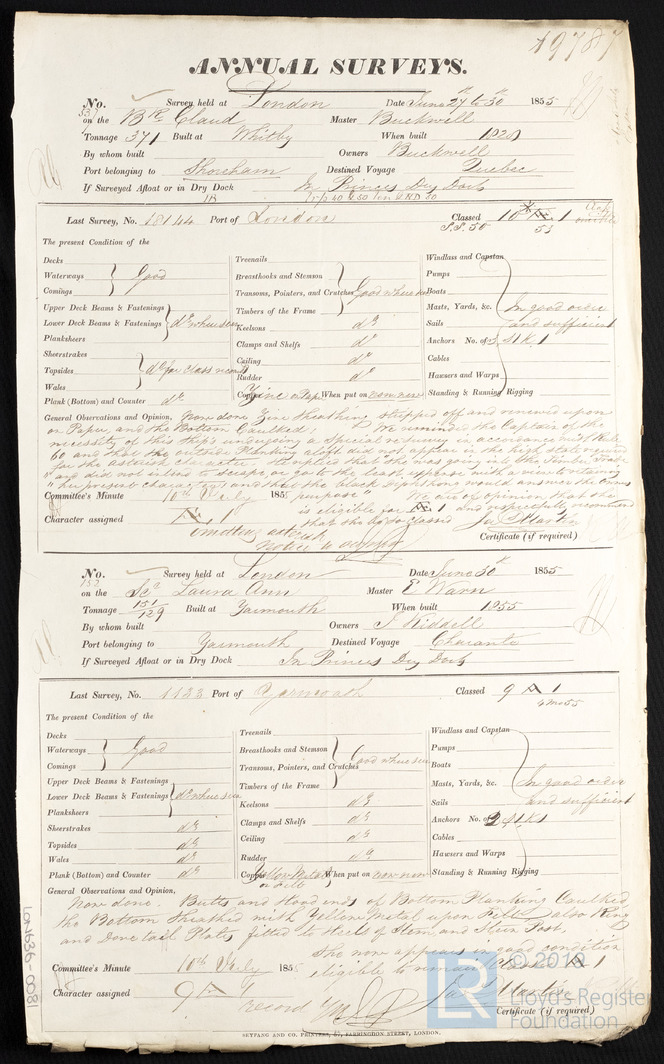 19787
ANNUAL SURVEYS.
No. 337 Survey held at London Date June 27th to 30th 1855
on the Bk Claud Master Buckwell
Tonnage 371 Built at Whitby When built 1828
By whom built Owners Buckwell
Port belonging to Shoreham Destined Voyage Quebec
If Surveyed Afloat or in Dry Dock In Princes Dry Dock
Last Survey, No. 18144 Port of London Classed 10 Æ 1
S.S. 50 53
The present Condition of the
Decks
Waterways Good
Comings
Upper Deck Beams & Fastenings
Lower Deck Beams & Fastenings do where seen
Planksheers
Sheerstrakes
Topsides do for class
Wales
Plank (Bottom) and Counter do
Treenails
Breasthooks and Stemson
Transoms, Pointers, and Crutches Good where seen
Timbers of the Frame
Keelsons do
Clamps and Shelfs do
Ceiling do
Rudder do
Copper Zinc on Paper When put on now new
Windlass and Capstan
Pumps
Boats
Masts, Yards, &c. In good order
Sails and sufficient
Anchors No. of 3, S 1 K 1
Cables
Hawsers and Warps
Standing & Running Rigging
General Observations and Opinion, Now done Zinc sheathing stripped off and renewed upon
on Paper, and the Bottom Caulked. We reminded the Captain of the
necessity of this Ship's undergoing a special resurvey in accordance with Rule
60 and that the outside Planking aloft did not appear in the high state required
for the asterisk character. He replied that "he was going in the Timber Trade
"and did not incline to scrape or go to the least expense with a view to retaining
"her present character, and that the black diphthong would answer the Owners
purpose" We are of opinion that she
is eligible for Æ 1 and respectfully recommend
that she be so classed
Committee's Minute 10th July 1855
Character assigned Æ 1
omitting asterisk
Certificate (if required)
No. 152 Survey held at London Date June 30th 1855
on the Scr Laura Ann Master E Warn
Tonnage 151/129 Built at Yarmouth When built 1855
By whom built Owners J Kiddell
Port belonging to Yarmouth Destined Voyage Charante
If Surveyed Afloat or in Dry Dock In Princes Dry Dock
Last Survey, No. 1123 Port of Yarmouth Classed 9 A 1
4 Mo 55
The present Condition of the
Decks
Waterways Good
Comings
Upper Deck Beams & Fastenings
Lower Deck Beams & Fastenings do where seen
Planksheers
Sheerstrakes do
Topsides do
Wales do
Plank (Bottom) and Counter do
Treenails
Breasthooks and Stemson
Transoms, Pointers, and Crutches Good where seen
Timbers of the Frame
Keelsons do
Clamps and Shelfs do
Ceiling do
Rudder do
Copper Yellow Metal on Felt When put on now new
Windlass and Capstan
Pumps
Boats
Masts, Yards, &c. In good order
Sails and sufficient
Anchors No. of 2, S 1 K 1
Cables
Hawsers and Warps
Standing & Running Rigging
General Observations and Opinion,
Now done. Butts and Hood ends of Bottom Planking Caulked,
the Bottom Sheathed with Yellow Metal upon Felt, also Ring
and Dove tail Plates fitted to Heels of Stem and Stern Post.
She now appears in good condition
eligible to remain Classed A 1
Committee's Minute 10th July 1855
Character assigned 9 A 1
record YM
Certificate (if required)
SEYFANG AND CO. PRINTERS, 57, FARRINGDON STREET, LONDON.
LON636-0081
LR
© 2019
Lloyd's Register
Foundation